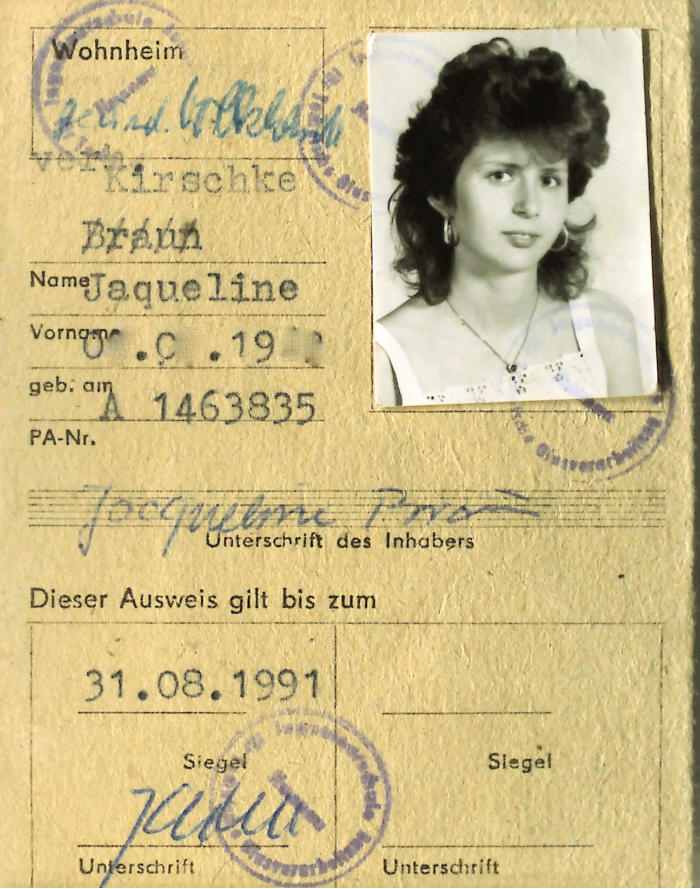 Wohnheim
verh.
Kirschke
Braun
Name Jaqueline
Vorname
.19
geb. am
A 1463835
PA-Nr.
Jacqueline
Unterschrift des Inhabers
Dieser Ausweis gilt bis zum
31.08.1991
Siegel Siegel
Unterschrift Unterschrift